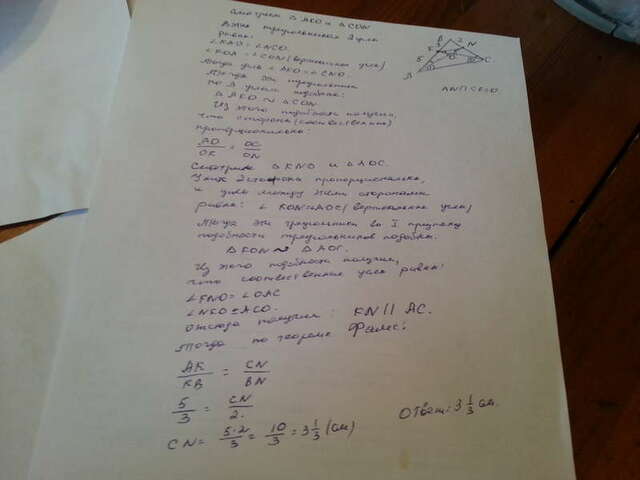 Смотрим △ AKO и △ CON
В этих треугольниках 2 угла
равны:
∠KAO = ∠NCO.
∠KOA = ∠CON (вертикальные углы)
Тогда углы ∠AKO = ∠CNO.
Тогда эти треугольники
по 3 углам подобны:
△ AKO ~ △ CON
Из этого подобия получим,
что стороны (соответственно)
пропорциональны:
AO/OK = OC/ON
Смотрим △ KNO и △ AOC.
У них 2 стороны пропорциональны,
и углы между этими сторонами
равны: ∠ KON = AOC (вертикальные углы)
Тогда эти треугольники по I признаку
подобности треугольников подобны.
△ KON ~ △ AOC.
Из этого подобия получим,
что соответственные углы равны:
∠KNO = ∠OAC
∠NKO = ∠ACO.
Отсюда получим: KN || AC.
Тогда по теореме Фалеса:
AK/KB = CN/BN
5/3 = CN/2.
CN = 5·2/3 = 10/3 = 3 1/3 (см)
Ответ: 3 1/3 см.
B
3
2
N
K
5
O
A
C
AN ∩ CK = O.